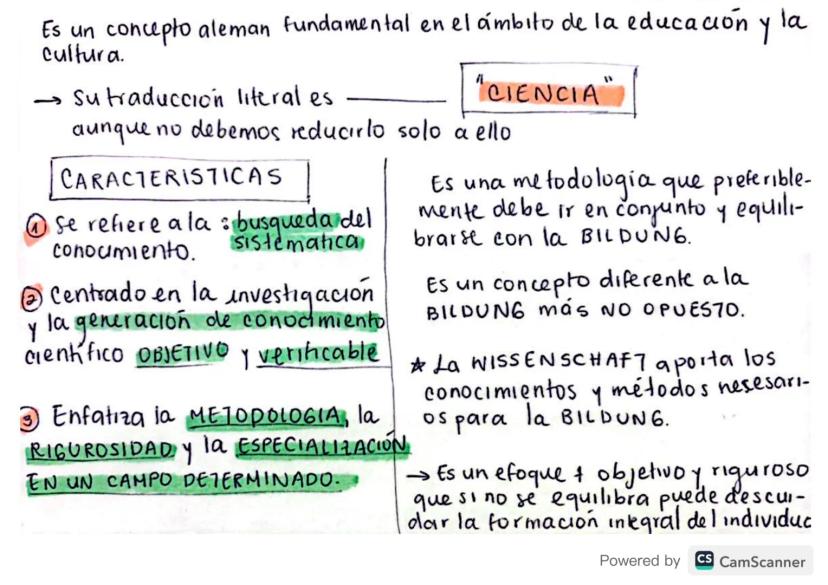 Es un concepto aleman fundamental en el ámbito de la educación y la
cultura.
→ Su traducción literal es ——— "CIENCIA"
aunque no debemos reducirlo solo a ello
CARACTERISTICAS
① Se refiere a la : busqueda del
conocimiento. sistematica
② Centrado en la investigación
y la generación de conocimiento
científico OBJETIVO y verificable
③ Enfatiza la METODOLOGIA, la
RIGUROSIDAD y la ESPECIALIZACIÓN
EN UN CAMPO DETERMINADO.
Es una metodologia que preferible-
mente debe ir en conjunto y equili-
brarse con la BILDUNG.
Es un concepto diferente a la
BILDUNG más NO OPUESTO.
★ La WISSENSCHAFT aporta los
conocimientos y métodos nesesari-
os para la BILDUNG.
→ Es un efoque + objetivo y riguroso
que si no se equilibra puede descui-
dar la formación integral del individuo
Powered by CS CamScanner